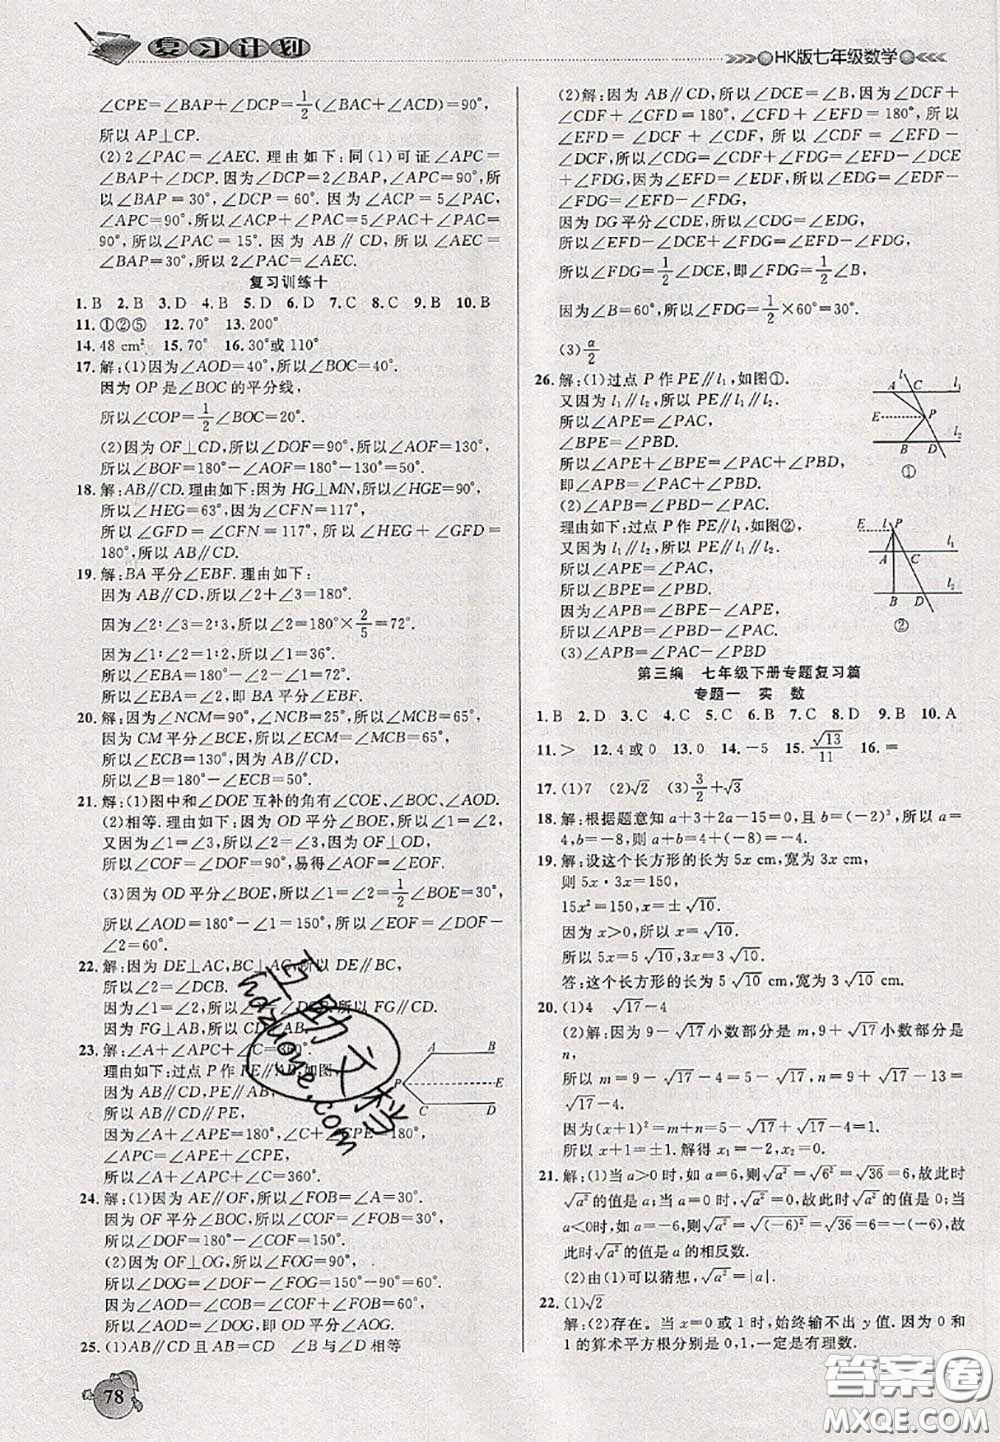 复习计划
HK版七年级数学
∠CPE=∠BAP+∠DCP=1/2(∠BAC+∠ACD)=90°,
所以 AP⊥CP.
(2)2∠PAC=∠AEC. 理由如下:同(1)可证∠APC=
∠BAP+∠DCP. 因为∠DCP=2∠BAP,∠APC=90°,所
以∠BAP=30°,∠DCP=60°. 因为∠ACP=5∠PAC,
∠APC=90°,所以∠ACP+∠PAC=5∠PAC+∠PAC=
90°,所以∠PAC=15°. 因为 AB∥CD,所以∠AEC=
∠BAP=30°,所以 2∠PAC=∠AEC.
复习训练十
1.B 2.B 3.D 4.B 5.D 6.D 7.C 8.C 9.B 10.B
11.①②⑤ 12.70° 13.200°
14.48 cm² 15.70° 16.30°或 110°
17.解:(1)因为∠AOD=40°,所以∠BOC=40°.
因为 OP 是∠BOC 的平分线,
所以∠COP=1/2∠BOC=20°.
(2)因为 OF⊥CD,所以∠DOF=90°,所以∠AOF=130°,
所以∠BOF=180°-∠AOF=180°-130°=50°.
18.解:AB∥CD. 理由如下:因为 HG⊥MN,所以∠HGE=90°,
所以∠HEG=63°,因为∠CFN=117°,
所以∠GFD=∠CFN=117°,所以∠HEG+∠GFD=
180°,所以 AB∥CD.
19.解:BA 平分∠EBF. 理由如下:
因为 AB∥CD,所以∠2+∠3=180°.
因为∠2∶∠3=2∶3,所以∠2=180°×2/5=72°.
因为∠1∶∠2=1∶2,所以∠1=36°.
所以∠EBA=180°-∠2-∠1=72°,
所以∠EBA=∠2,即 BA 平分∠EBF.
20.解:因为∠NCM=90°,∠NCB=25°,所以∠MCB=65°,
因为 CM 平分∠BCE,所以∠MCE=∠MCB=65°,
所以∠ECB=130°,因为 AB∥CD,
所以∠B=180°-∠ECB=50°.
21.解:(1)图中和∠DOE 互补的角有∠COE、∠BOC、∠AOD.
(2)相等. 理由如下:因为 OD 平分∠BOE,所以∠1=∠2,
又因为∠1=∠3,所以∠2=∠3. 因为 OF⊥OD,
所以∠COF=∠DOF=90°,易得∠AOF=∠EOF.
(3)因为 OD 平分∠BOE,所以∠1=∠2=1/2∠BOE=30°,
所以∠AOD=180°-∠1=150°,所以∠EOF=∠DOF-
∠2=60°.
22.解:因为 DE⊥AC,BC⊥AC,所以 DE∥BC,
所以∠2=∠DCB.
因为∠1=∠2,所以∠1=∠DCB,所以 FG∥CD.
因为 FG⊥AB,所以 CD⊥AB.
23.解:∠A+∠APC+∠C=360°.
理由如下:过点 P 作 PE∥AB,如图,
因为 AB∥CD,PE∥AB,
所以 AB∥CD∥PE,
所以∠A+∠APE=180°,∠C+∠CPE=180°,
∠APC=∠APE+∠CPE,
所以∠A+∠APC+∠C=360°.
A B
P E
C D
24.解:(1)因为 AE∥OF,所以∠FOB=∠A=30°.
因为 OF 平分∠BOC,所以∠COF=∠FOB=30°,
所以∠DOF=180°-∠COF=150°.
(2)因为 OF⊥OG,所以∠FOG=90°,
所以∠DOG=∠DOF-∠FOG=150°-90°=60°,
因为∠AOD=∠COB=∠COF+∠FOB=60°,
所以∠AOD=∠DOG,所以 OD 平分∠AOG.
25.(1)AB∥CD 且 AB=CD ∠B 与∠D 相等
(2)解:因为 AB∥CD,所以∠DCE=∠B,因为∠DCF+
∠CDF+∠CFD=180°,∠CFD+∠EFD=180°,所以
∠EFD=∠DCF+∠CDF,所以∠CDF=∠EFD-
∠DCF,所以∠CDG=∠CDF+∠FDG=∠EFD-∠DCE
+∠FDG. 因为∠EFD=∠EDF,所以∠EDG=∠EDF-
∠FDG=∠EFD-∠FDG,
因为 DG 平分∠CDE,所以∠CDG=∠EDG,
所以∠EFD-∠DCE+∠FDG=∠EFD-∠FDG,所以
∠FDG=1/2∠DCE,即∠FDG=1/2∠B,
因为∠B=60°,所以∠FDG=1/2×60°=30°.
(3)α/2
26.解:(1)过点 P 作 PE∥l₁,如图①.
又因为 l₁∥l₂,所以 PE∥l₁∥l₂.
所以∠APE=∠PAC,
∠BPE=∠PBD.
所以∠APE+∠BPE=∠PAC+∠PBD,
即∠APB=∠PAC+∠PBD.
l₃
A C l₁
E P
B D l₂
①
(2)∠APB=∠PBD-∠PAC.
理由如下:过点 P 作 PE∥l₁,如图②,
又因为 l₁∥l₂,所以 PE∥l₁∥l₂,
所以∠APE=∠PAC,
∠BPE=∠PBD,
因为∠APB=∠BPE-∠APE,
所以∠APB=∠PBD-∠PAC.
(3)∠APB=∠PAC-∠PBD
E P
A C l₁
B D l₂
②
第三编 七年级下册专题复习篇
专题一 实 数
1.B 2.D 3.C 4.C 5.C 6.B 7.D 8.D 9.B 10.A
11.> 12.4 或 0 13.0 14.-5 15.√13/11 16.=
17.(1)7 (2)√2 (3)3/2+√3
18.解:根据题意知 a+3+2a-15=0,且 b=(-2)³,所以 a=
4,b=-8,则 a+b=4+(-8)=-4.
19.解:设这个长方形的长为 5x cm,宽为 3x cm,
则 5x·3x=150,
15x²=150,x=±√10.
因为 x>0,所以 x=√10.
所以 5x=5√10,3x=3√10.
答:这个长方形的长为 5√10 cm,宽为 3√10 cm.
20.(1)4 √17-4
(2)解:因为 9-√17小数部分是 m,9+√17小数部分是
n,
所以 m=9-√17-4=5-√17,n=9+√17-13=
√17-4.
因为(x+1)²=m+n=5-√17+√17-4=1,
所以 x+1=±1. 解得 x₁=-2,x₂=0.
21.解:(1)当 a>0 时,如 a=6,则√a²=√6²=√36=6,故此时
√a²的值是 a;当 a=0 时,√a²=0,故此时√a²的值是 0;当
a<0时,如 a=-6,则√a²=√(-6)²=√36=6=-(-6),故
此时√a²的值是 a 的相反数.
(2)由(1)可以猜想,√a²=|a|.
22.(1)√2
(2)解:存在. 当 x=0 或 1 时,始终输不出 y 值. 因为 0 和
1 的算术平方根分别是 0,1,一定是有理数.
78
互助文档
hdzuoye.com
答案圈
MXQE.COM